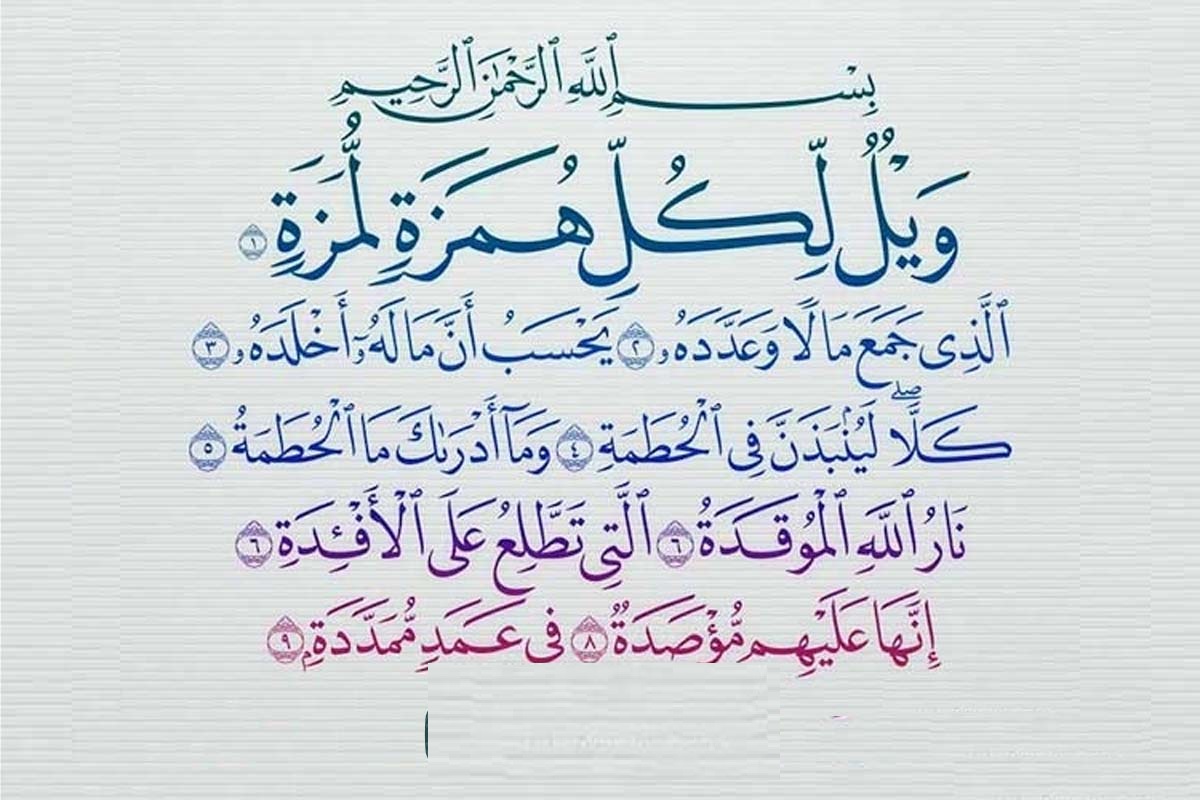 بِسْمِ ٱللَّهِ ٱلرَّحْمَٰنِ ٱلرَّحِيمِ
وَيْلٌ لِّكُلِّ هُمَزَةٍ لُّمَزَةٍ ١
ٱلَّذِى جَمَعَ مَالًا وَعَدَّدَهُۥ ٢ يَحْسَبُ أَنَّ مَالَهُۥٓ أَخْلَدَهُۥ ٣
كَلَّا ۖ لَيُنۢبَذَنَّ فِى ٱلْحُطَمَةِ ٤ وَمَآ أَدْرَىٰكَ مَا ٱلْحُطَمَةُ ٥
نَارُ ٱللَّهِ ٱلْمُوقَدَةُ ٦ ٱلَّتِى تَطَّلِعُ عَلَى ٱلْأَفْـِٔدَةِ ٦
إِنَّهَا عَلَيْهِم مُّؤْصَدَةٌ ٨ فِى عَمَدٍ مُّمَدَّدَةٍۭ ٩